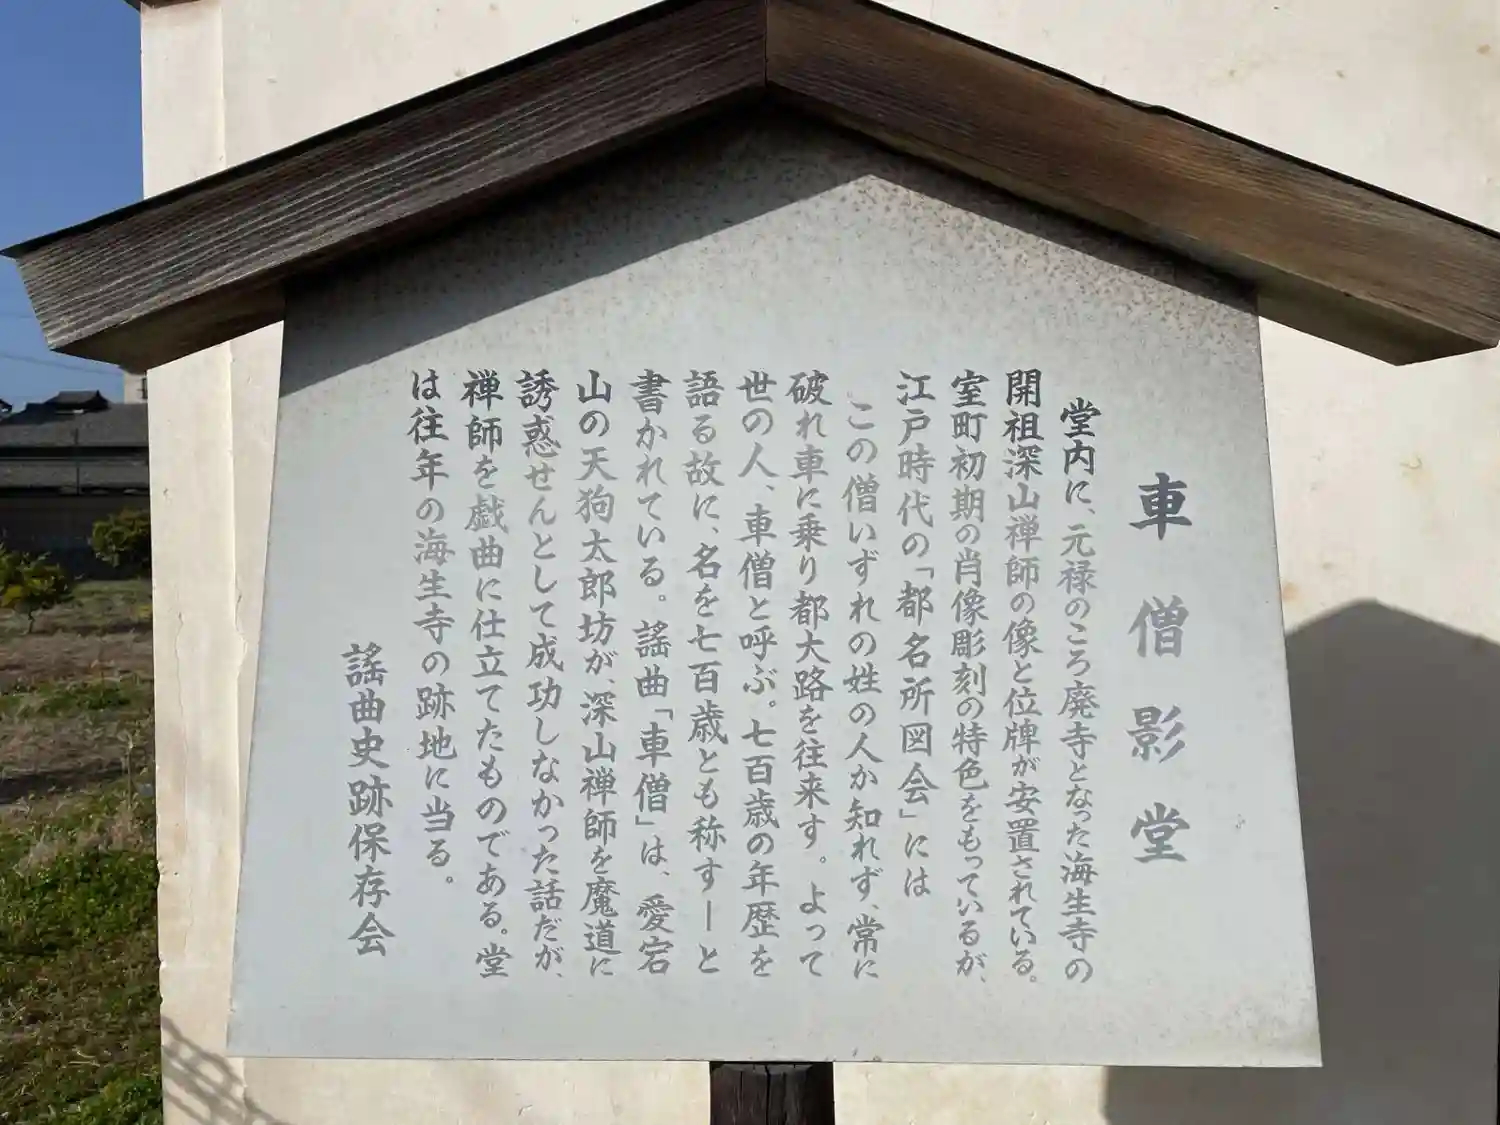 車僧影堂
堂内に、元禄のころ廃寺となった海生寺の
開祖深山禅師の像と位牌が安置されている。
室町初期の肖像彫刻の特色をもっているが、
江戸時代の「都名所図会」には
この僧いずれの姓の人か知れず、常に
破れ車に乗り都大路を往来す。よって
世の人、車僧と呼ぶ。七百歳の年歴を
語る故に、名を七百歳とも称すーと
書かれている。謡曲「車僧」は、愛宕
山の天狗太郎坊が、深山禅師を魔道に
誘惑せんとして成功しなかった話だが、
禅師を戯曲に仕立てたものである。堂
は往年の海生寺の跡地に当る。
謡曲史跡保存会